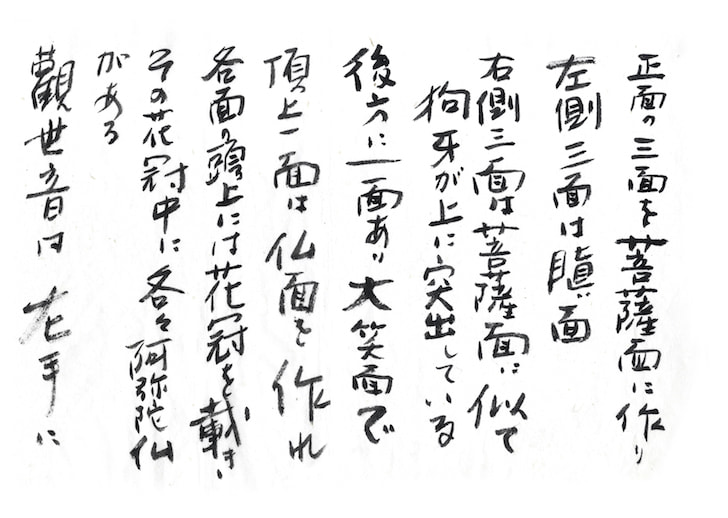 正面の三面を菩薩面に作り
左側三面は瞋面
右側三面は菩薩面に似て
狗牙が上に突出している
後方に一面あり大笑面で
頂上一面は仏面を作れ
各面の頭上には花冠を戴き
その花冠中に各々阿弥陀仏
がある
觀世音は左手に